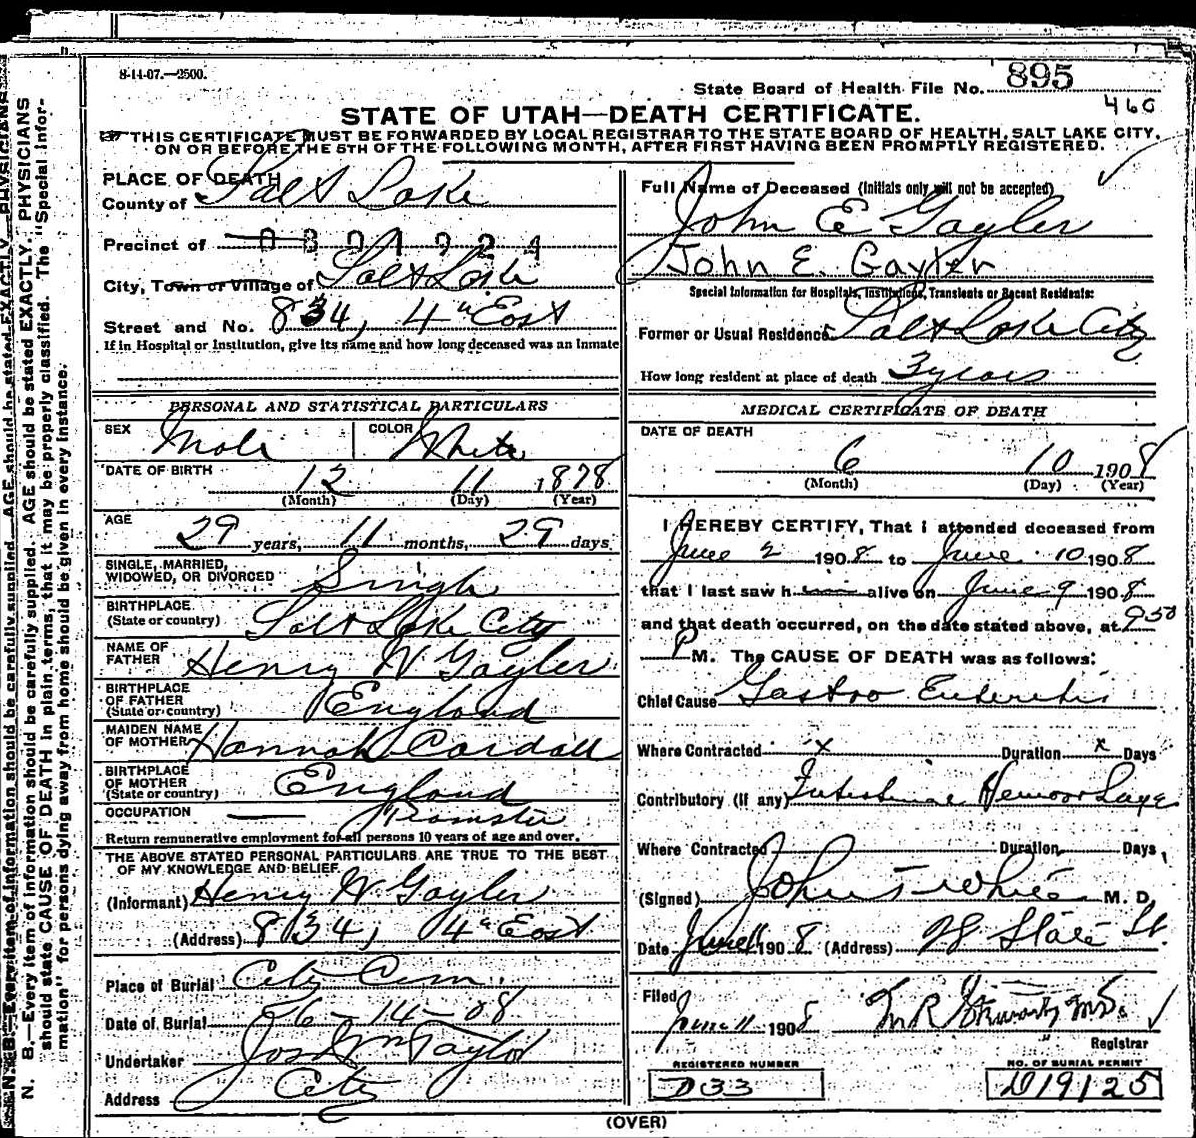 8-14-07.—2500.
State Board of Health File No. 895
460
STATE OF UTAH—DEATH CERTIFICATE.
THIS CERTIFICATE MUST BE FORWARDED BY LOCAL REGISTRAR TO THE STATE BOARD OF HEALTH, SALT LAKE CITY,
ON OR BEFORE THE 5TH OF THE FOLLOWING MONTH, AFTER FIRST HAVING BEEN PROMPTLY REGISTERED.
N. B.—Every item of information should be carefully supplied. AGE should be stated EXACTLY. PHYSICIANS
should state CAUSE OF DEATH in plain terms, that it may be properly classified. The "Special Infor-
mation" for persons dying away from home should be given in every instance.
PLACE OF DEATH
County of Salt Lake
Precinct of 0801924
City, Town or Village of Salt Lake
Street and No. 834, 4th East
If in Hospital or Institution, give its name and how long deceased was an Inmate
Full Name of Deceased (Initials only will not be accepted)
John E Gayler
John E. Gayler
Special Information for Hospitals, Institutions, Transients or Recent Residents:
Former or Usual Residence Salt Lake City
How long resident at place of death 3 years
PERSONAL AND STATISTICAL PARTICULARS
SEX Male COLOR White
DATE OF BIRTH 12 11 1878
(Month) (Day) (Year)
AGE 29 years, 11 months, 29 days
SINGLE, MARRIED,
WIDOWED, OR DIVORCED Single
BIRTHPLACE
(State or country) Salt Lake City
NAME OF
FATHER Henry W Gayler
BIRTHPLACE
OF FATHER
(State or country) England
MAIDEN NAME
OF MOTHER Hannah Cardall
BIRTHPLACE
OF MOTHER
(State or country) England
OCCUPATION Teamster
Return remunerative employment for all persons 10 years of age and over.
THE ABOVE STATED PERSONAL PARTICULARS ARE TRUE TO THE BEST
OF MY KNOWLEDGE AND BELIEF
(Informant) Henry W Gayler
(Address) 834, 4th East
Place of Burial City Cem.
Date of Burial 6-14-08
Undertaker Jos Wm Taylor
Address City
MEDICAL CERTIFICATE OF DEATH
DATE OF DEATH
6 10 1908
(Month) (Day) (Year)
I HEREBY CERTIFY, That I attended deceased from
June 2 1908 to June 10 1908
that I last saw h alive on June 9 1908
and that death occurred, on the date stated above, at 9 50
P M. The CAUSE OF DEATH was as follows:
Chief Cause Gastro Enteretis
Where Contracted x Duration x Days
Contributory (if any) Intestinal Hemorrhage
Where Contracted Duration Days
(Signed) John T White M. D.
Date June 11 1908 (Address) 28 State St.
Filed
June 11 1908 M.D.
Registrar
REGISTERED NUMBER
D33
NO. OF BURIAL PERMIT
D19125
(OVER)